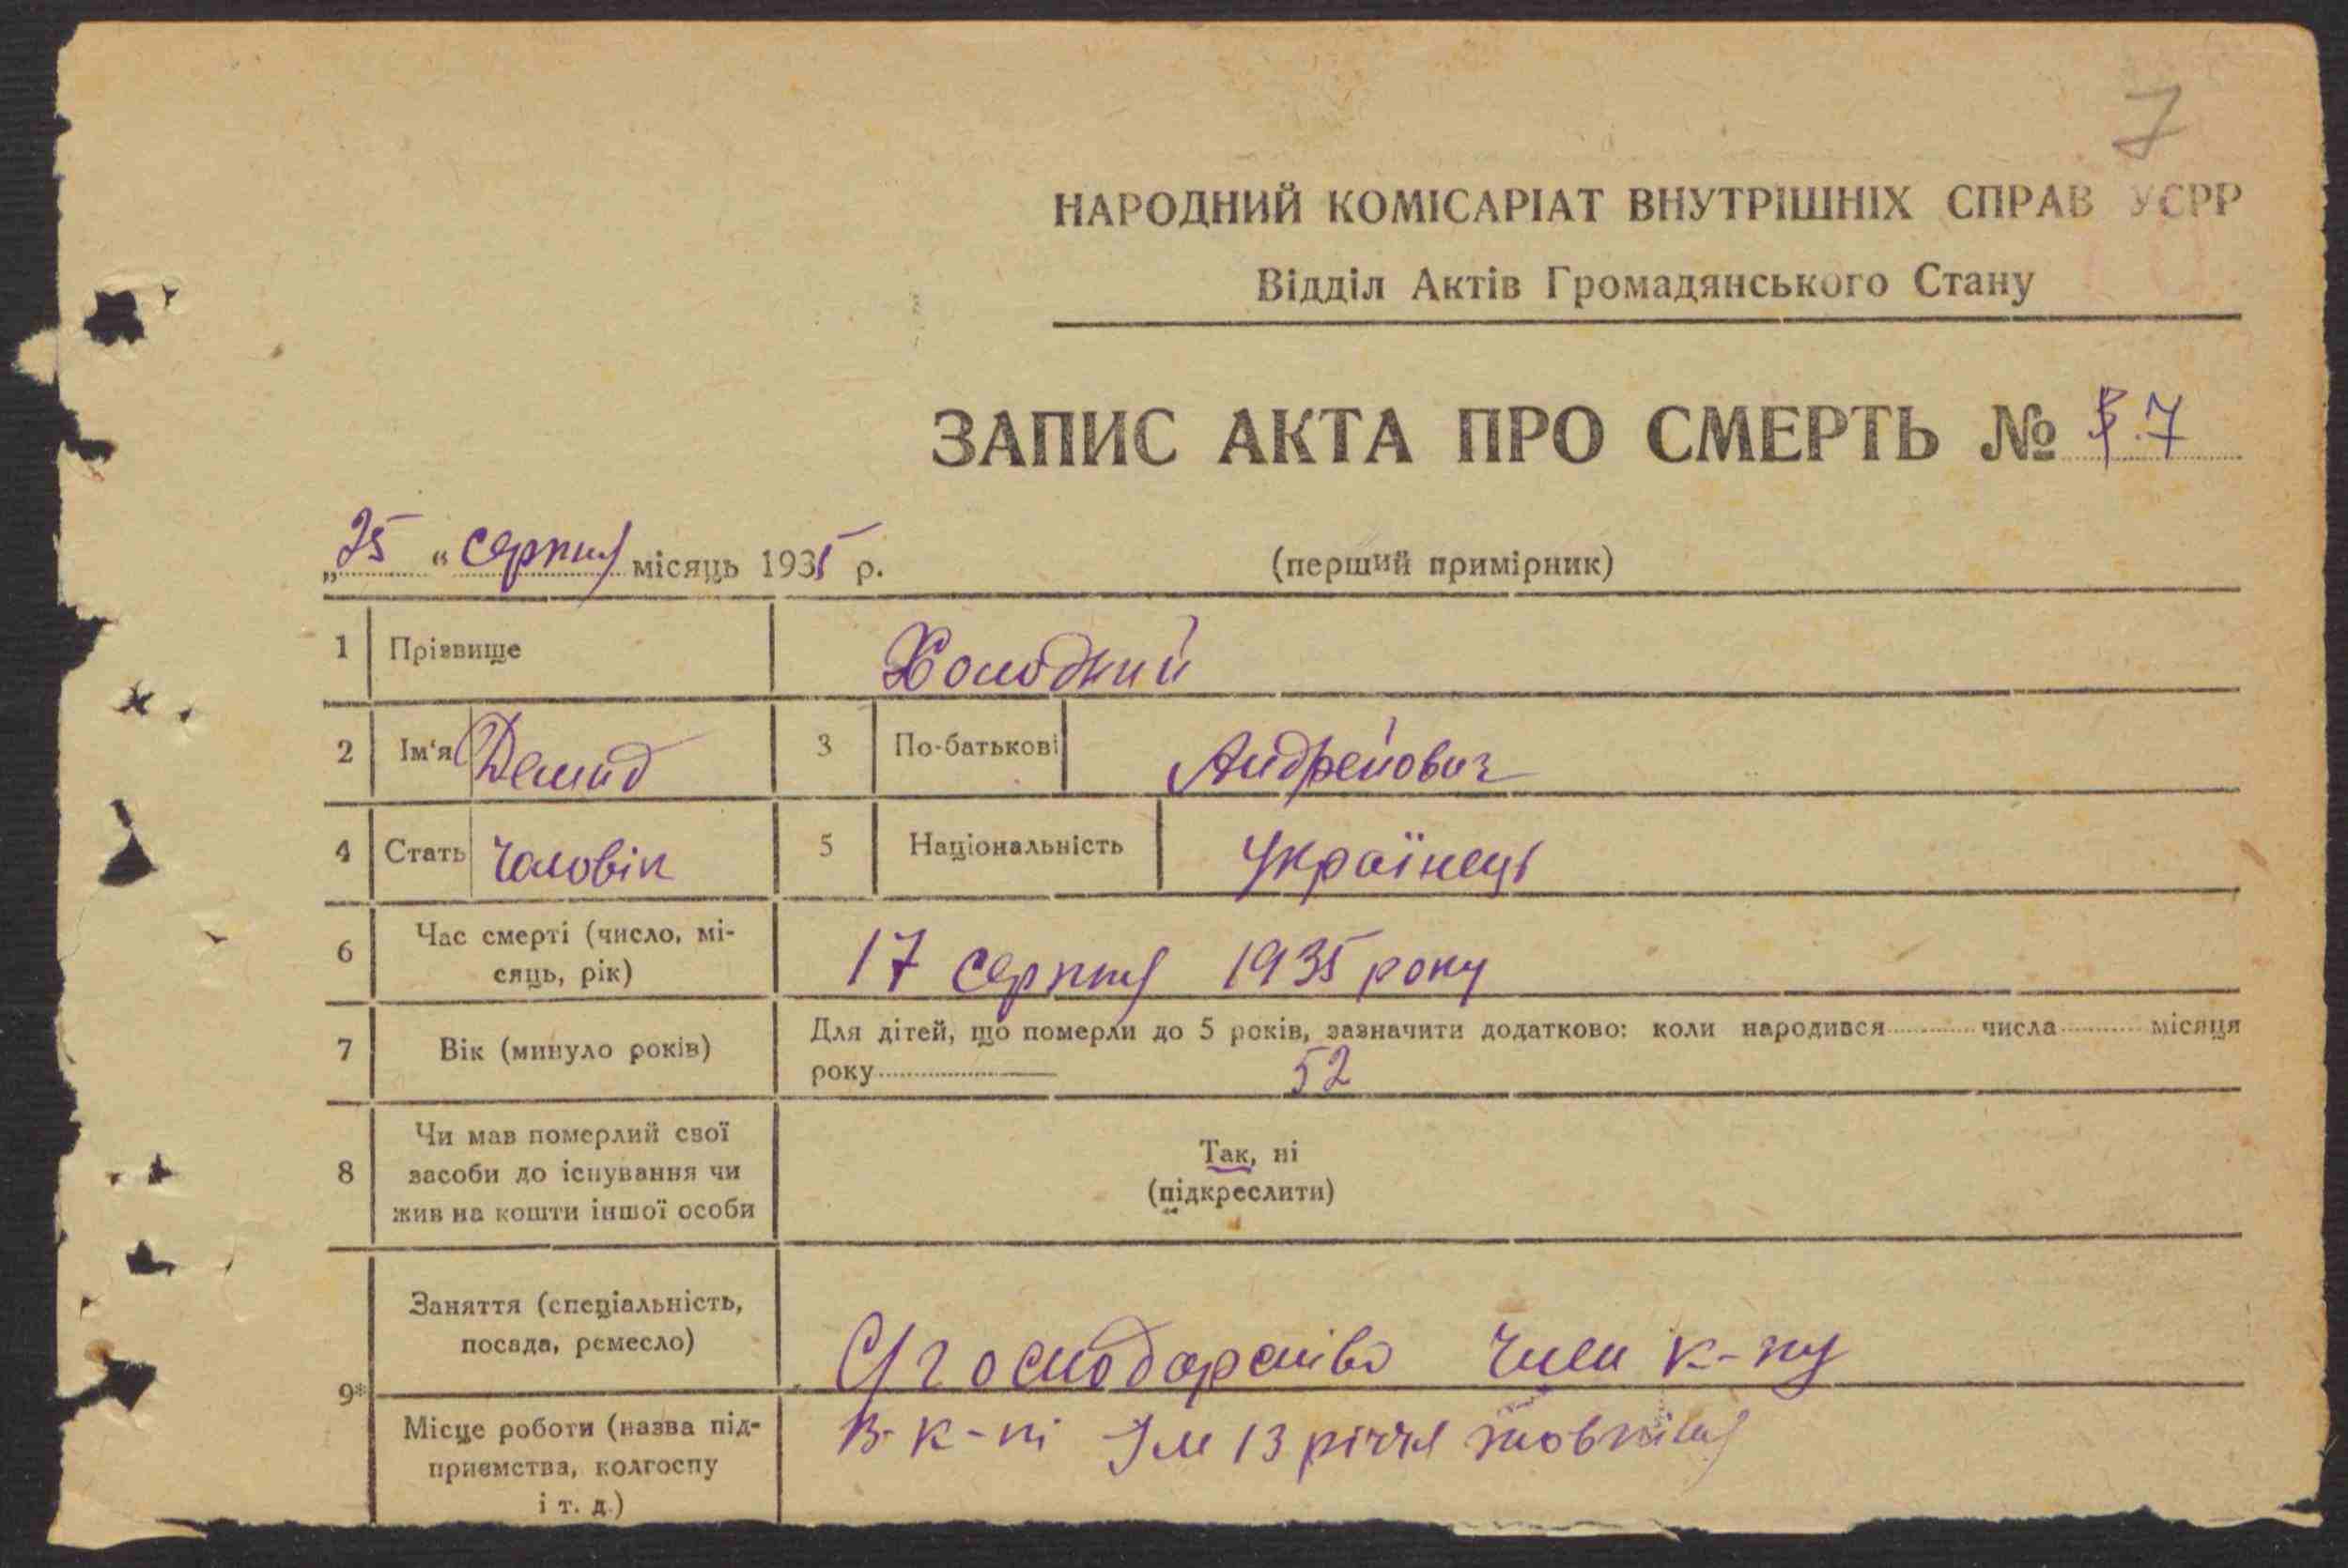 7
НАРОДНИЙ КОМІСАРІАТ ВНУТРІШНІХ СПРАВ УСРР
Відділ Актів Громадянського Стану
ЗАПИС АКТА ПРО СМЕРТЬ № 7
„25“ серпня місяць 1935 р.
(перший примірник)
1 Прізвище Холодний
2 Ім'я Демид 3 По-батькові Андрейович
4 Стать Чоловік 5 Національність Українець
6 Час смерті (число, мі-
сяць, рік) 17 серпня 1935 року
7 Вік (минуло років) Для дітей, що померли до 5 років, зазначити додатково: коли народився числа місяця
року 52
8 Чи мав померлий свої
засоби до існування чи
жив на кошти іншої особи
Так, ні
(підкреслити)
9* Заняття (спеціальність,
посада, ремесло) С/господарство Член к-пу
Місце роботи (назва під-
приємства, колгоспу
і т. д.) В к-пі Ім 13 річчя жовтня